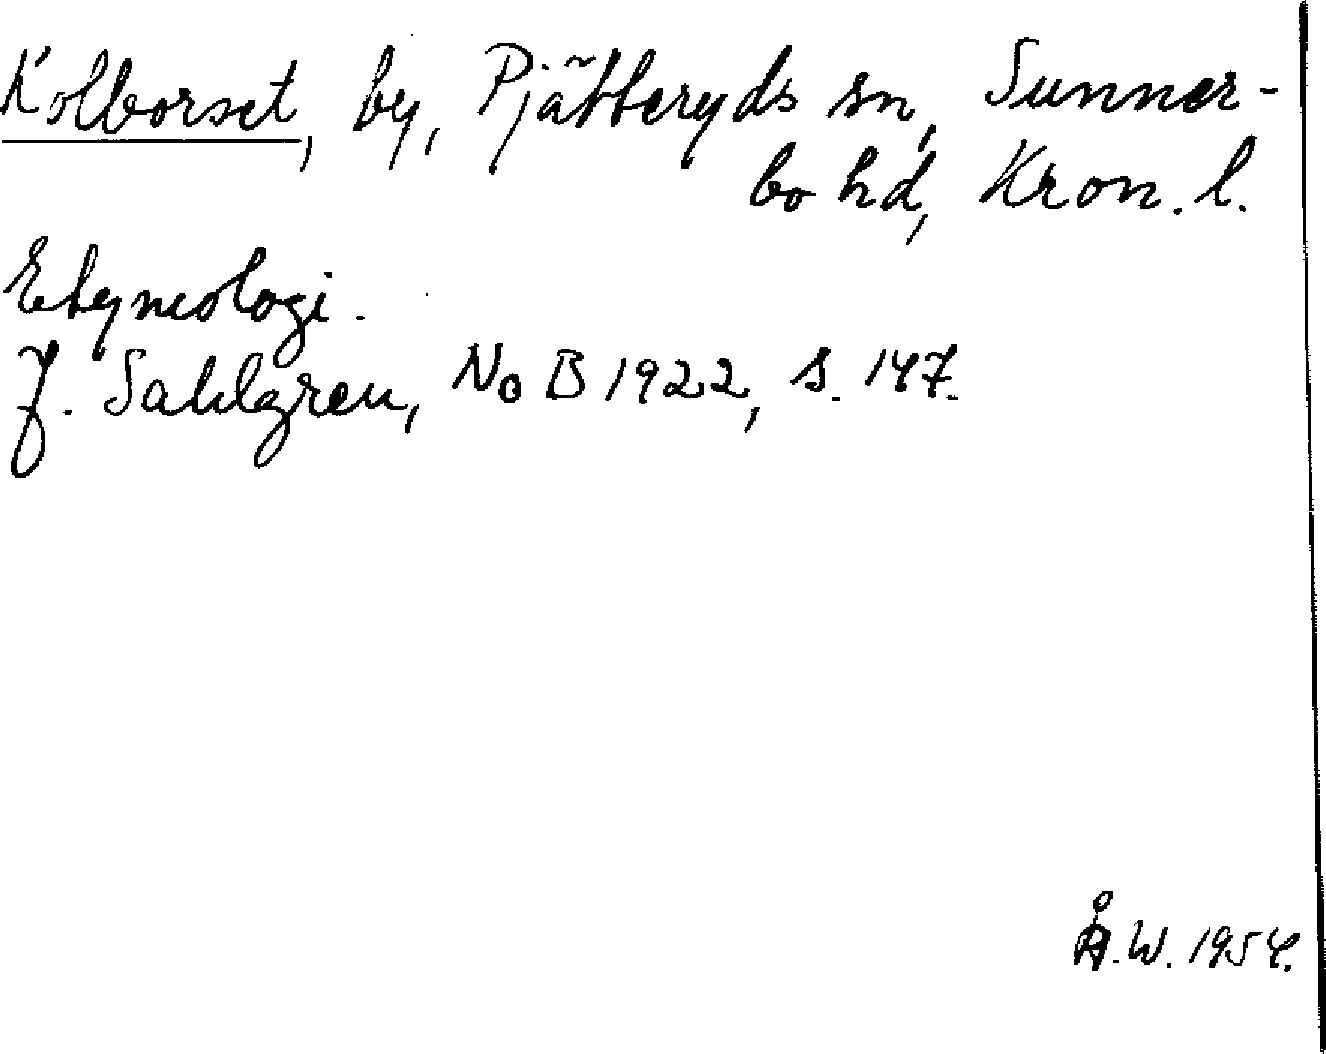 Kolborset, by, Pjätteryds sn, Sunner-
bo hd, Kron. l.
Etymologi.
J. Sahlgren, NoB 1922, s. 147.
Å.W. 1954.